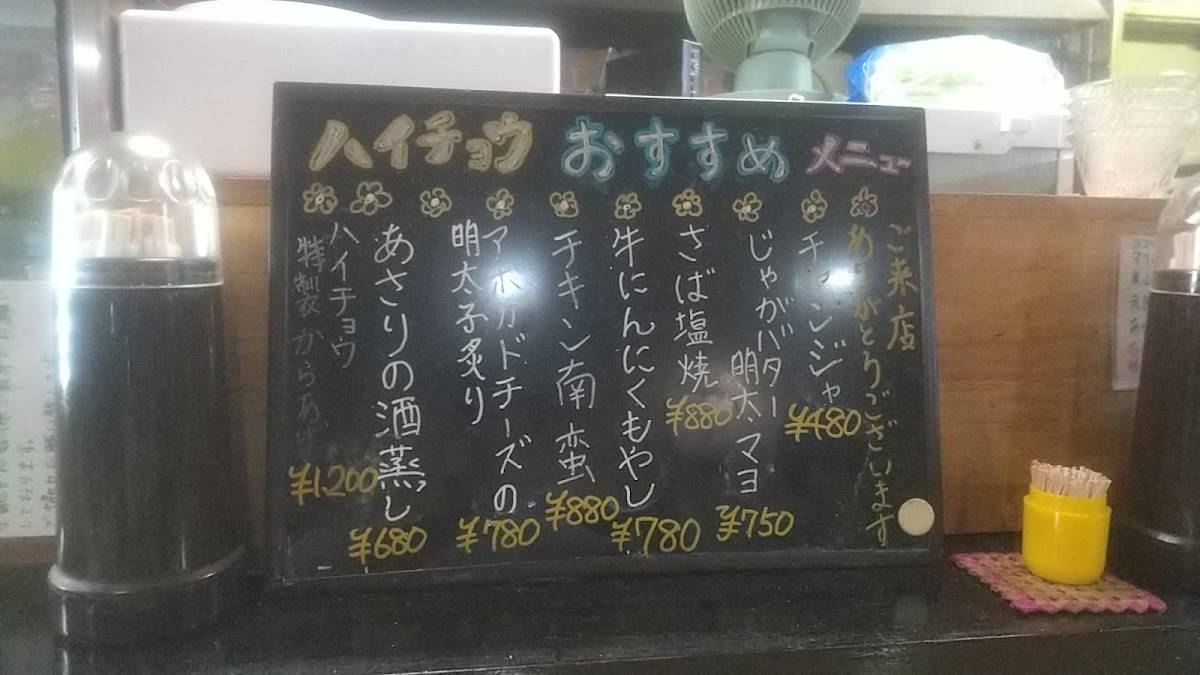 ハイチョウ おすすめ メニュー
ご来店
ありがとうございます
チャンジャ
¥480
じゃがバター
明太マヨ
¥750
さば塩焼
¥880
牛にんにくもやし
¥780
チキン南蛮
¥880
アボカドチーズの
明太子炙り
¥780
あさりの酒蒸し
¥680
ハイチョウ
特製からあげ
¥1,200